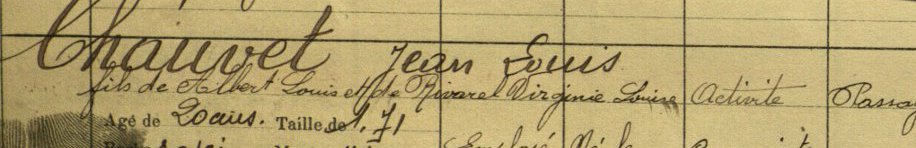 Chauvet Jean Louis
fils de Albert Louis et de Rivarel Virginie Louise Activité Passag
Agé de 20 ans. Taille de 1,71
Emploié